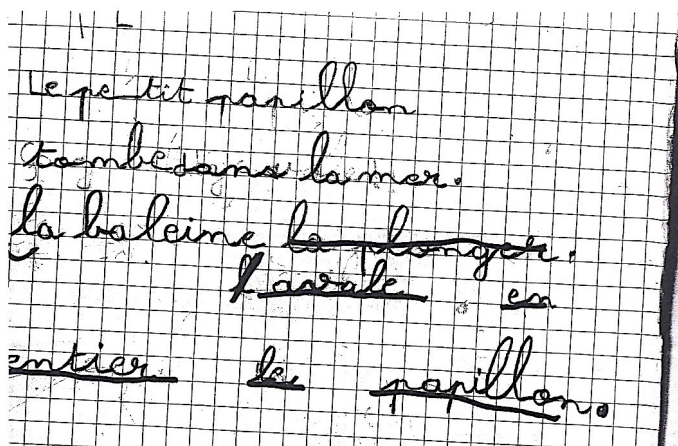 Le petit papillon
tombe dans la mer.
la baleine la plonger.
l'avale en
entier le papillon.